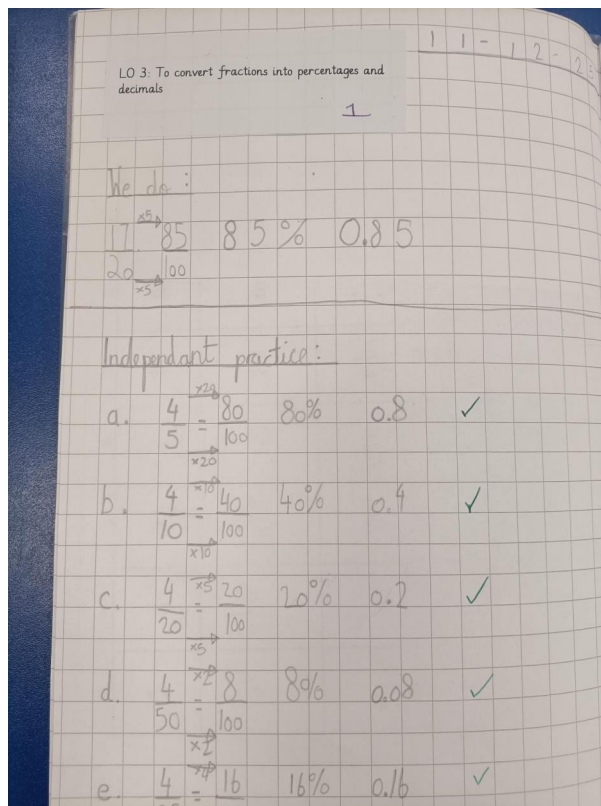 11-12-23
LO 3: To convert fractions into percentages and
decimals
1
We do:
×5
17/20 85/100 85% 0.85
×5
Independant practice:
×20
a. 4/5 = 80/100 80% 0.8 ✓
×20
×10
b. 4/10 = 40/100 40% 0.4 ✓
×10
×5
c. 4/20 = 20/100 20% 0.2 ✓
×5
×2
d. 4/50 = 8/100 8% 0.08 ✓
×2
×4
e. 4 = 16 16% 0.16 ✓